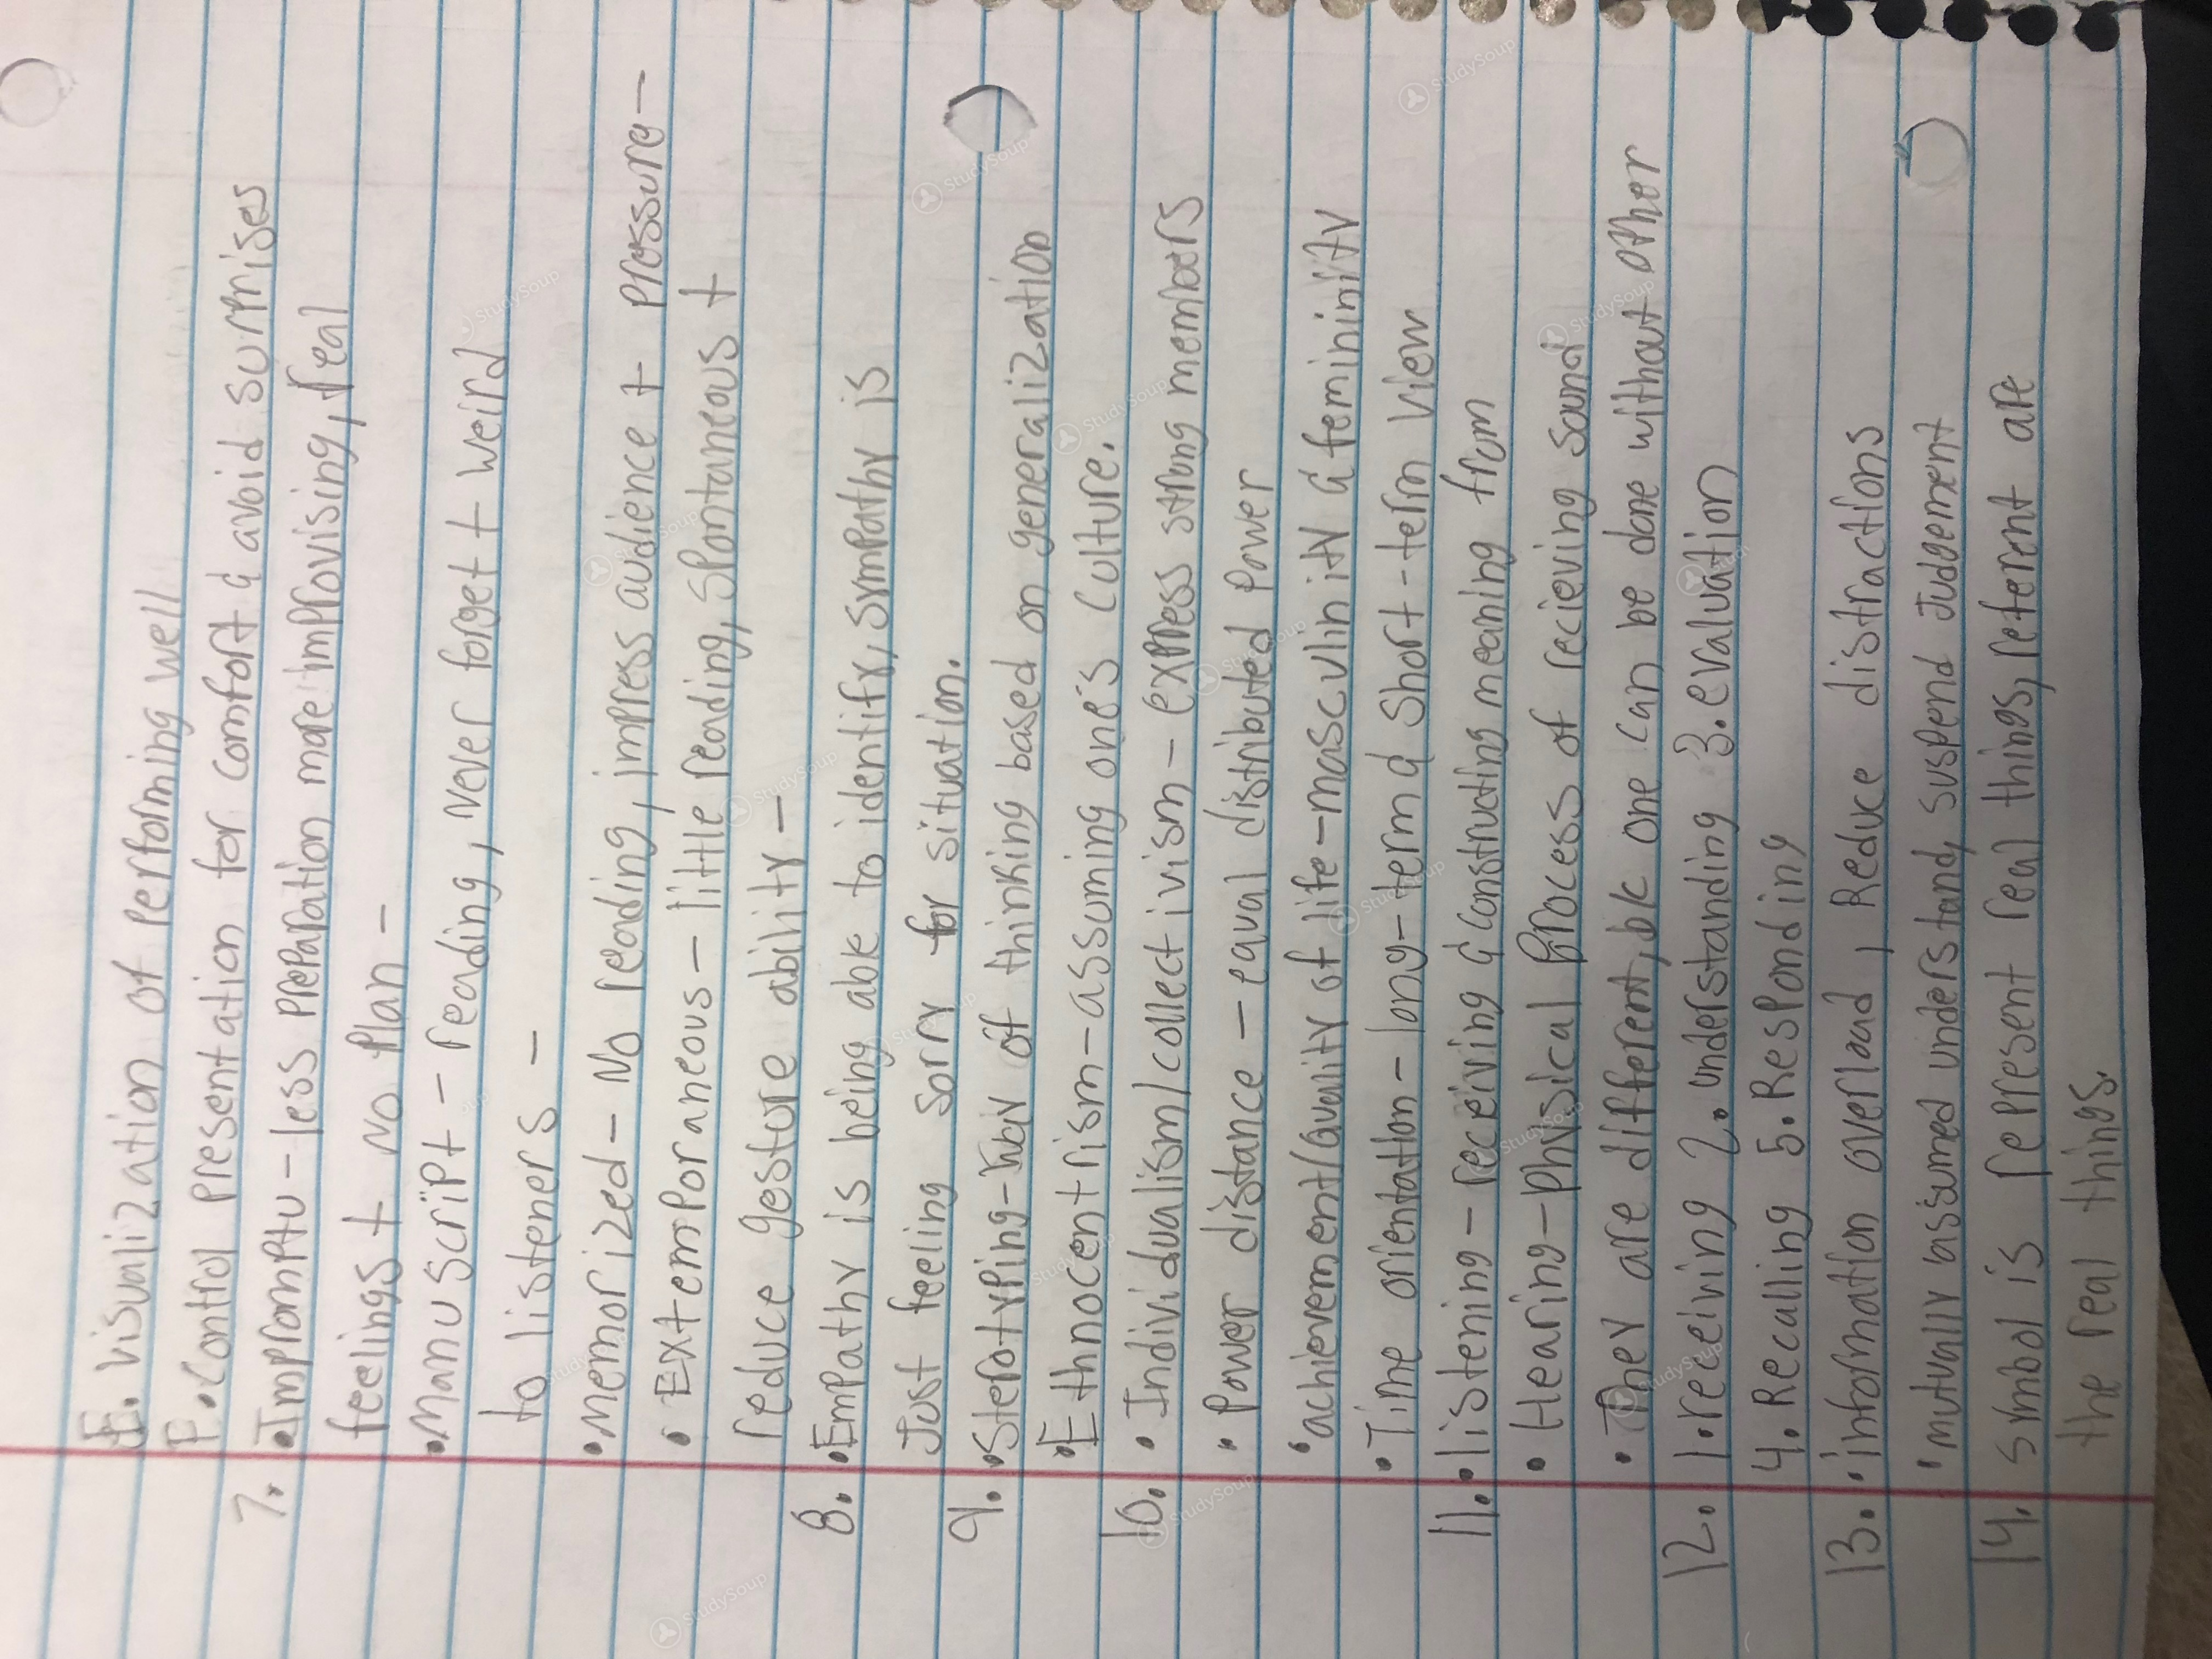 E. Visualization of Performing well
F. Control Presentation for comfort & avoid surprises
7. • Impromptu - less preparation more improvising, real
feelings + No Plan -
• Manuscript - reading, Never forget + weird
to listeners -
• Memorized - No reading, impress audience + pressure -
• Extemporaneous - little reading, spontaneous +
reduce gesture ability -
8. • Empathy is being able to identify, sympathy is
Just feeling sorry for situation.
9. • Sterotyping - way of thinking based on generalization
• Ethnocentrism - assuming one's culture.
10. • Individualism/collectivism - express strong members
• Power distance - equal distributed Power
• achievement/quality of life - masculinity & femininity
• Time orientation - long-term & Short-term view
11. • listening - receiving & constructing meaning from
• Hearing - Physical Process of recieving sound
• They are different, b/c one can be done without other
12. 1. receiving 2. understanding 3. evaluation
4. Recalling 5. Responding
13. • information overload, Reduce distractions
• mutually assumed understand, suspend Judgement
14. symbol is represent real things, referent are
the real things.
StudySoup